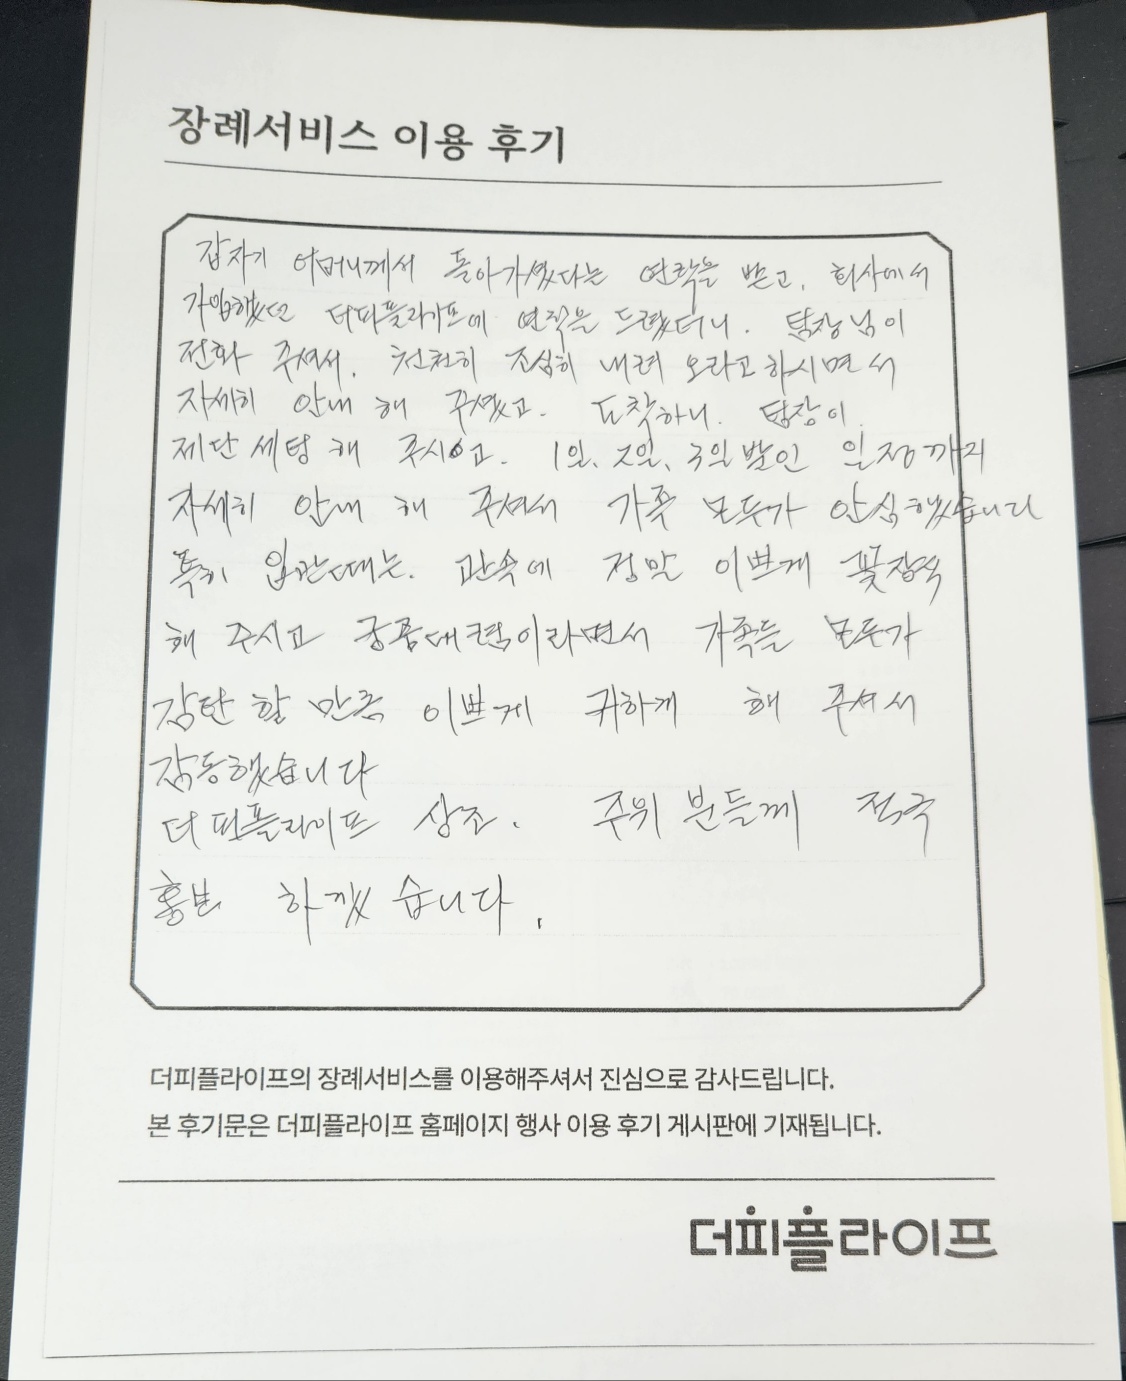 장례서비스 이용 후기
갑자기 어머니께서 돌아가셨다는 연락을 받고, 회사에서
가입했던 더피플라이프에 연락을 드렸더니. 팀장님이
전화 주셔서, 천천히 조심히 내려 오라고하시면서
자세히 안내 해 주셨고. 도착하니. 팀장이.
제단 세팅 해 주시고. 1일, 2일, 3일 발인 일정까지
자세히 안내 해 주셔서 가족 모두가 안심했습니다
특히 입관때는. 관속에 정말 이쁘게 꽃장식
해 주시고 궁중대렴이라면서 가족들 모두가
감탄 할 만큼 이쁘게 귀하게 해 주셔서
감동했습니다
더피플라이프 상조. 주위 분들께 적극
홍보 하겠습니다.
더피플라이프의 장례서비스를 이용해주셔서 진심으로 감사드립니다.
본 후기문은 더피플라이프 홈페이지 행사 이용 후기 게시판에 기재됩니다.
더피플라이프